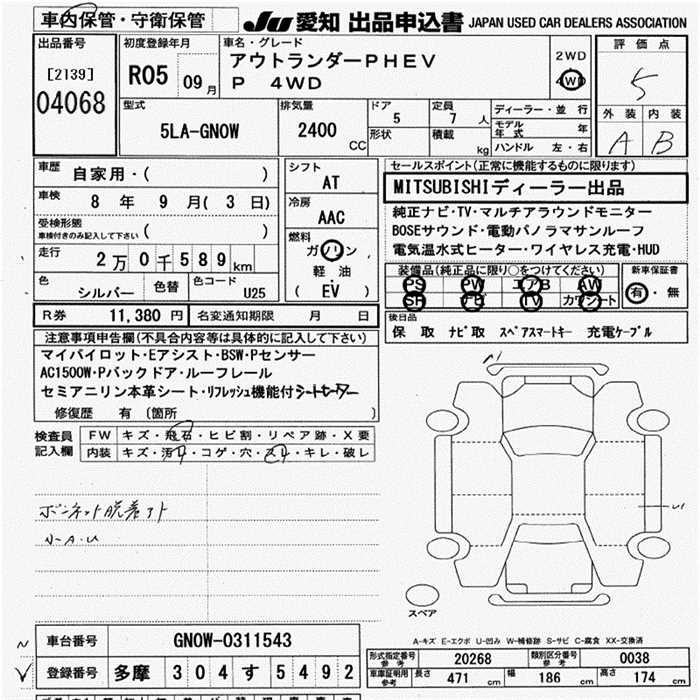 車内保管・守衛保管 JU 愛知 出品申込書 JAPAN USED CAR DEALERS ASSOCIATION
出品番号
[2139]
04068
初度登録年月
R05 09月
車名・グレード
アウトランダーPHEV
P 4WD
2WD
4WD
評価点
5
外装 内装
A B
型式
5LA-GN0W
排気量
2400 CC
ドア
5
形状
定員
7 人
積載
kg
ディーラー・並行
モデル年式 年
ハンドル 左・右
車歴
自家用・( )
車検
8 年 9 月( 3 日)
受検形態
車検付きのみ記入して下さい ( )
走行
2万0千589km
色
シルバー
色替
色コード
U25
シフト
AT
冷房
AAC
燃料
ガソリン
軽油
( EV )
セールスポイント(正常に機能するものに限ります)
MITSUBISHIディーラー出品
純正ナビ・TV・マルチアラウンドモニター
BOSEサウンド・電動パノラマサンルーフ
電気温水式ヒーター・ワイヤレス充電・HUD
装備品(純正品に限り○をつけてください)
PS PW エアB AW
SR ナビ TV カワシート
新車保証書
有・無
R券 11,380 円 名変通知期限 月 日
後日品
保 取 ナビ取 スペアスマートキー 充電ケーブル
注意事項申告欄(不具合内容等は具体的に記入して下さい)
マイパイロット・Eアシスト・BSW・Pセンサー
AC1500W・Pバックドア・ルーフレール
セミアニリン本革シート・リフレッシュ機能付シートヒーター
修復歴 有 (箇所 )
検査員記入欄
FW キズ・飛石・ヒビ割・リペア跡・X要
内装 キズ・汚れ・コゲ・穴・スレ・キレ・破レ
ボンネット脱着アト
小-A・U
A1
U1
スペア
A-キズ E-エクボ U-凹み W-補修跡 S-サビ C-腐食 XX-交換済
車台番号 GN0W-0311543
登録番号 多摩 304 す 5492
形式指定番号 参考 20268 類別区分番号 参考 0038
車庫証明用 参考 長さ 471 cm 幅 186 cm 高さ 174 cm